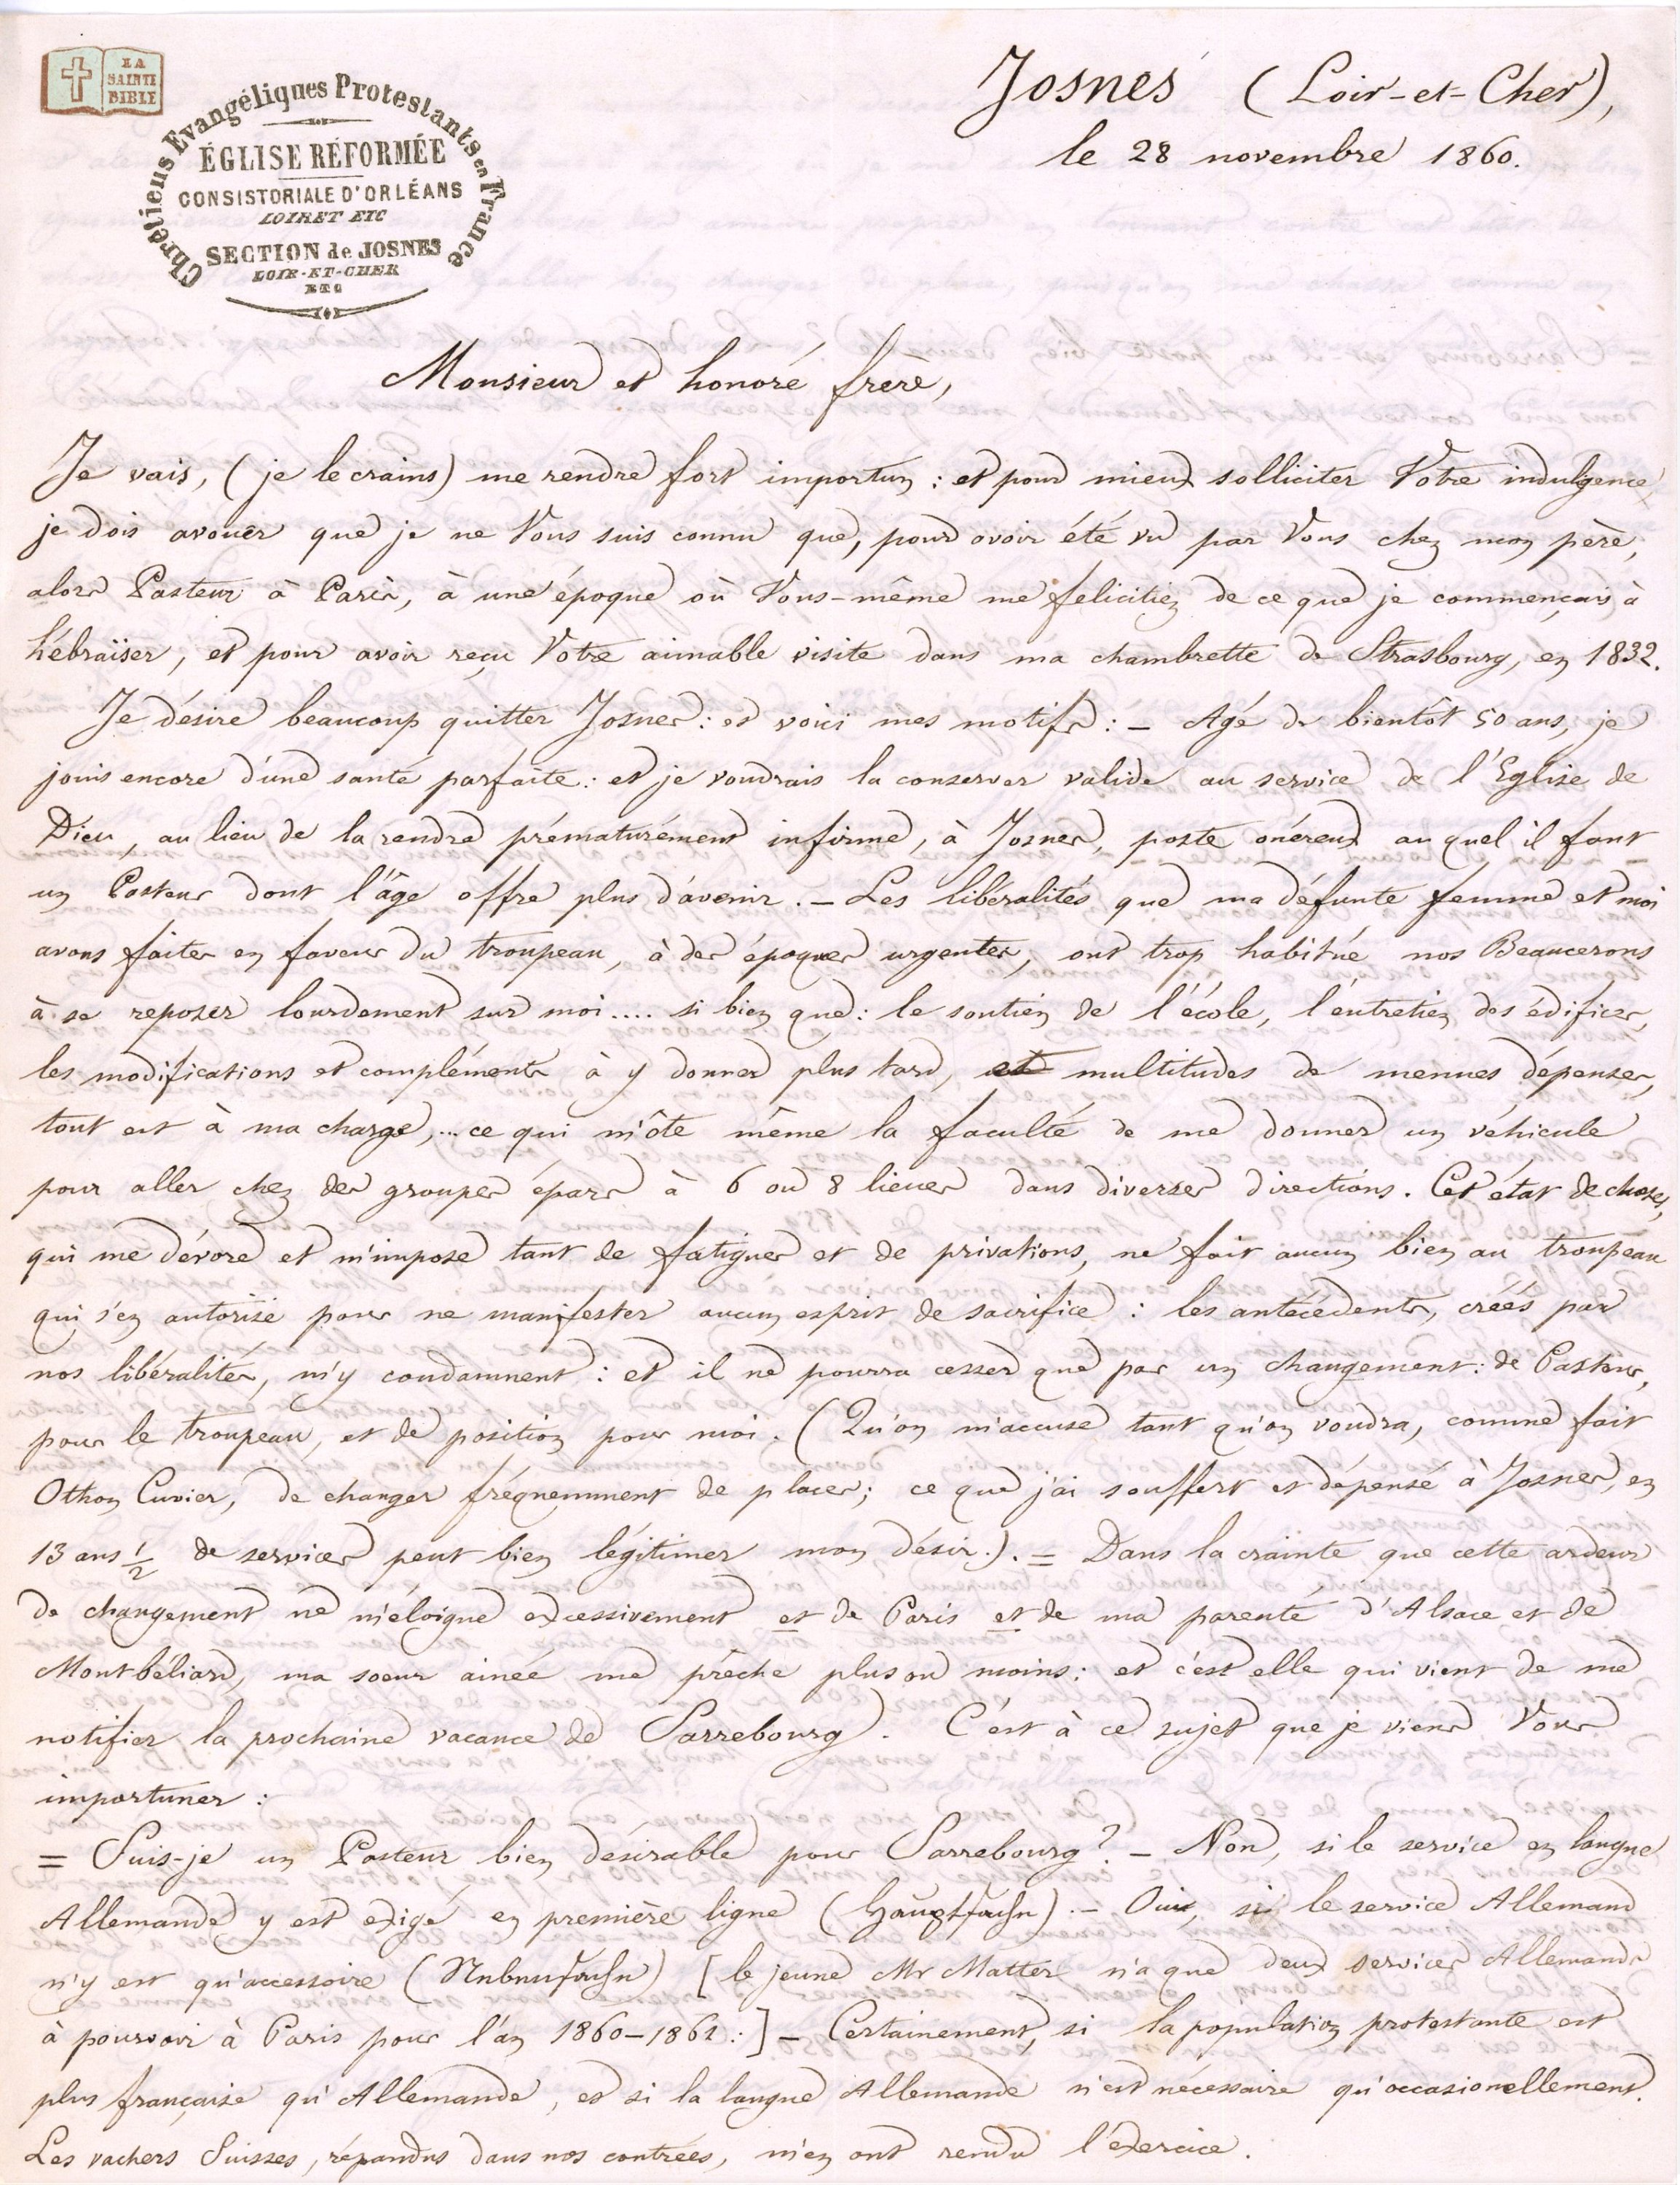 LA
SAINTE
BIBLE
Chrétiens Evangéliques Protestants en France
ÉGLISE RÉFORMÉE
CONSISTORIALE D'ORLÉANS
LOIRET ETC
SECTION de JOSNES
LOIR-ET-CHER
ETC
Josnes (Loir-et-Cher),
le 28 novembre 1860.
Monsieur et honoré frère,
Je vais, (je le crains) me rendre fort importun : et pour mieux solliciter Votre indulgence,
je dois avouer que je ne Vous suis connu que, pour avoir été vu par Vous chez mon père,
alors Pasteur à Paris, à une époque où Vous-même me félicitiez de ce que je commençais à
hébraïser, et pour avoir reçu Votre aimable visite dans ma chambrette de Strasbourg, en 1832.
Je désire beaucoup quitter Josnes : et voici mes motifs : – Agé de bientôt 50 ans, je
jouis encore d'une santé parfaite : et je voudrais la conserver valide au service de l'Eglise de
Dieu, au lieu de la rendre prématurément infirme, à Josnes, poste onéreux au quel il faut
un Pasteur dont l'âge offre plus d'avenir. – Les libéralités que ma défunte femme et moi
avons faites en faveur du troupeau, à des époques urgentes, ont trop habitué nos Beaucerons
à se reposer lourdement sur moi.... si bien que : le soutien de l'école, l'entretien des édifices,
les modifications et compléments à y donner plus tard, et multitudes de menues dépenses,
tout est à ma charge,... ce qui m'ôte même la faculté de me donner un véhicule
pour aller chez des groupes épars à 6 ou 8 lieues dans diverses directions. Cet état de choses,
qui me dévore et m'impose tant de fatigues et de privations, ne fait aucun bien au troupeau
qui s'en autorise pour ne manifester aucun esprit de sacrifice : les antécédents, créés par
nos libéralités, m'y condamnent : et il ne pourra cesser que par un changement : de Pasteur,
pour le troupeau, et de position pour moi. (Qu'on m'accuse tant qu'on voudra, comme fait
Othon Cuvier, de changer fréquemment de places ; ce que j'ai souffert et dépensé à Josnes, en
13 ans 1/2 de services peut bien légitimer mon désir.). = Dans la crainte que cette ardeur
de changement ne m'éloigne excessivement et de Paris et de ma parenté d'Alsace et de
Montbéliard, ma soeur ainée me prêche plus ou moins : et c'est elle qui vient de me
notifier la prochaine vacance de Sarrebourg. C'est à ce sujet que je viens Vous
importuner :
= Suis-je un Pasteur bien désirable pour Sarrebourg ? – Non, si le service en langue
Allemande y est exigé en première ligne (Hauptsache). – Oui, si le service Allemand
n'y est qu'accessoire (Nebensache) [le jeune Mr Matter n'a que deux services Allemands
à pourvoir à Paris pour l'an 1860–1861 :] – Certainement, si la population protestante est
plus française qu'Allemande, et si la langue Allemande n'est nécessaire qu'occasionellement.
Les vachers Suisses, répandus dans nos contrées, m'en ont rendu l'exercice.